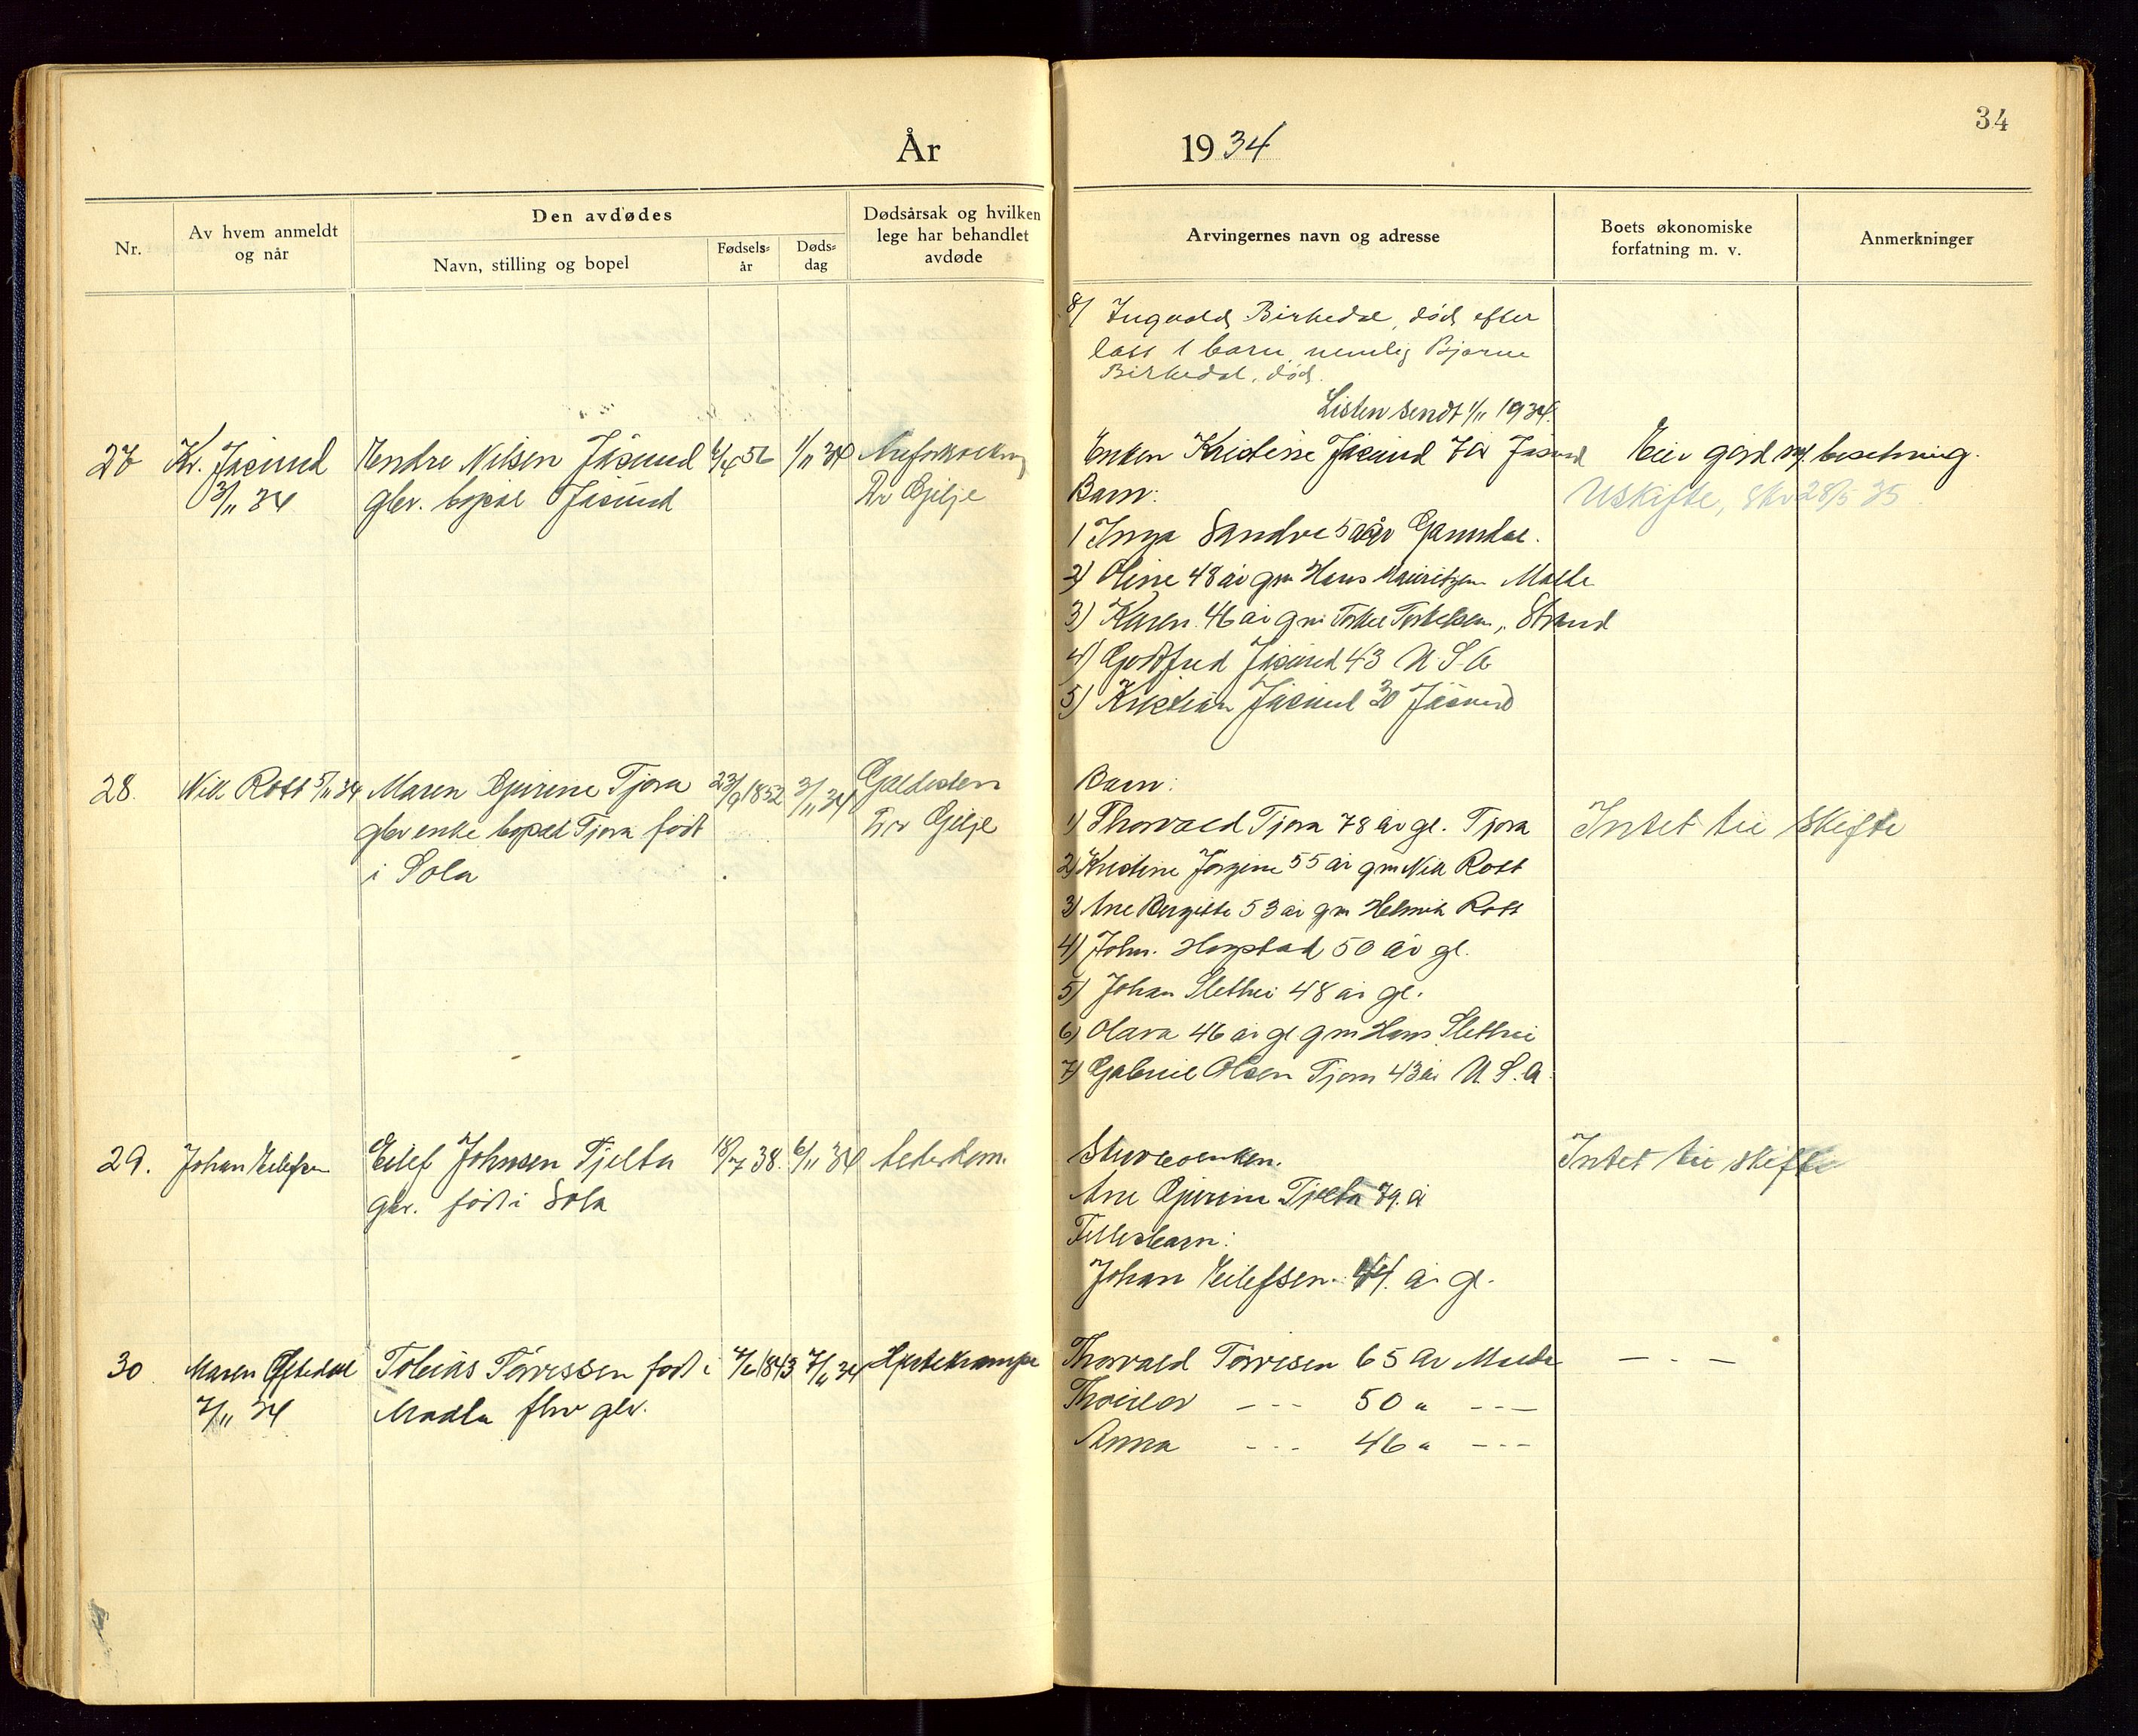 34
År 1934
Nr.
Av hvem anmeldt og når
Den avdødes
Navn, stilling og bopel
Fødsels-år
Døds-dag
Dødsårsak og hvilken lege har behandlet avdøde
Arvingernes navn og adresse
Boets økonomiske forfatning m. v.
Anmerkninger
8/ Ingvald Birkedal, död efter
lass 1 barn, nemlig Bjarne
Birkedal, död.
Listen sendt 1/11 1934.
27 Kr. Jåsund Endre Nilsen Jåsund 56 1/11 34
3/11 34 gbr. bopæl Jåsund Dr Gilje
Enken Kristine Jåsund Jåsund Eier gård m/ besetning.
Barn: Uskifte, Skr 28/5 35
1 Inga Sandve år Ganndal.
2) Oline 48 år gm Hans Mauritzen Malle
3) Karen 46 år gm Torkel Torkelsen, Strand
4) Gottfred Jåsund 43 U S A
5) Kristian Jåsund 30 Jåsund
28. Nils Rott 5/11 34 Maren Gurine Tjora 23/9 1852 3/11 34 Galdesten
gbr enke bopæl Tjora født Dr Gilje
i Sola
Barn:
1) Thorvald Tjora 78 år gl. Tjora Intet til skifte
2) Kristine Jörgine 55 år gm Nils Rott
3) Ane Bergitte 53 år gm Helmik Rott
4) John. Hogstad 50 år gl.
5) Johan Slethei 48 år gl.
6) Olava 46 år gl gm Hans Slethei
7) Gabriel Olsen Tjora 43 år U. S. A.
29. Johan Eilefsen Eilef Johnsen Tjelta 18/7 38. 6/11 34 Alderdom.
gbr. født i Sola
Ane Gurine Tjelta 79. år Intet til skifte
Fellesbarn:
Johan Eilefsen. 44. år gl.
30 Maren Oftedal Tobias Törressen født i 1843 7/11 34 Hjertekrampe
7/11 34 Madla fhv gbr.
Thorvald Törresen 65 år Madla — . —
--- 50 " ---
Anna --- 46 " ---